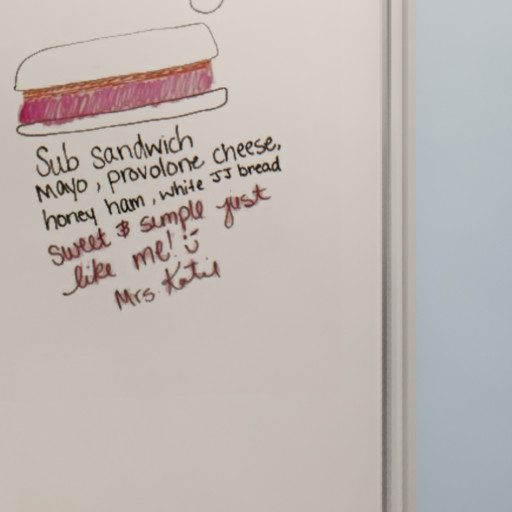 Sub Sandwich
Mayo, provolone cheese,
honey ham, white JJ bread
sweet & simple just
like me! :)
Mrs. Katie